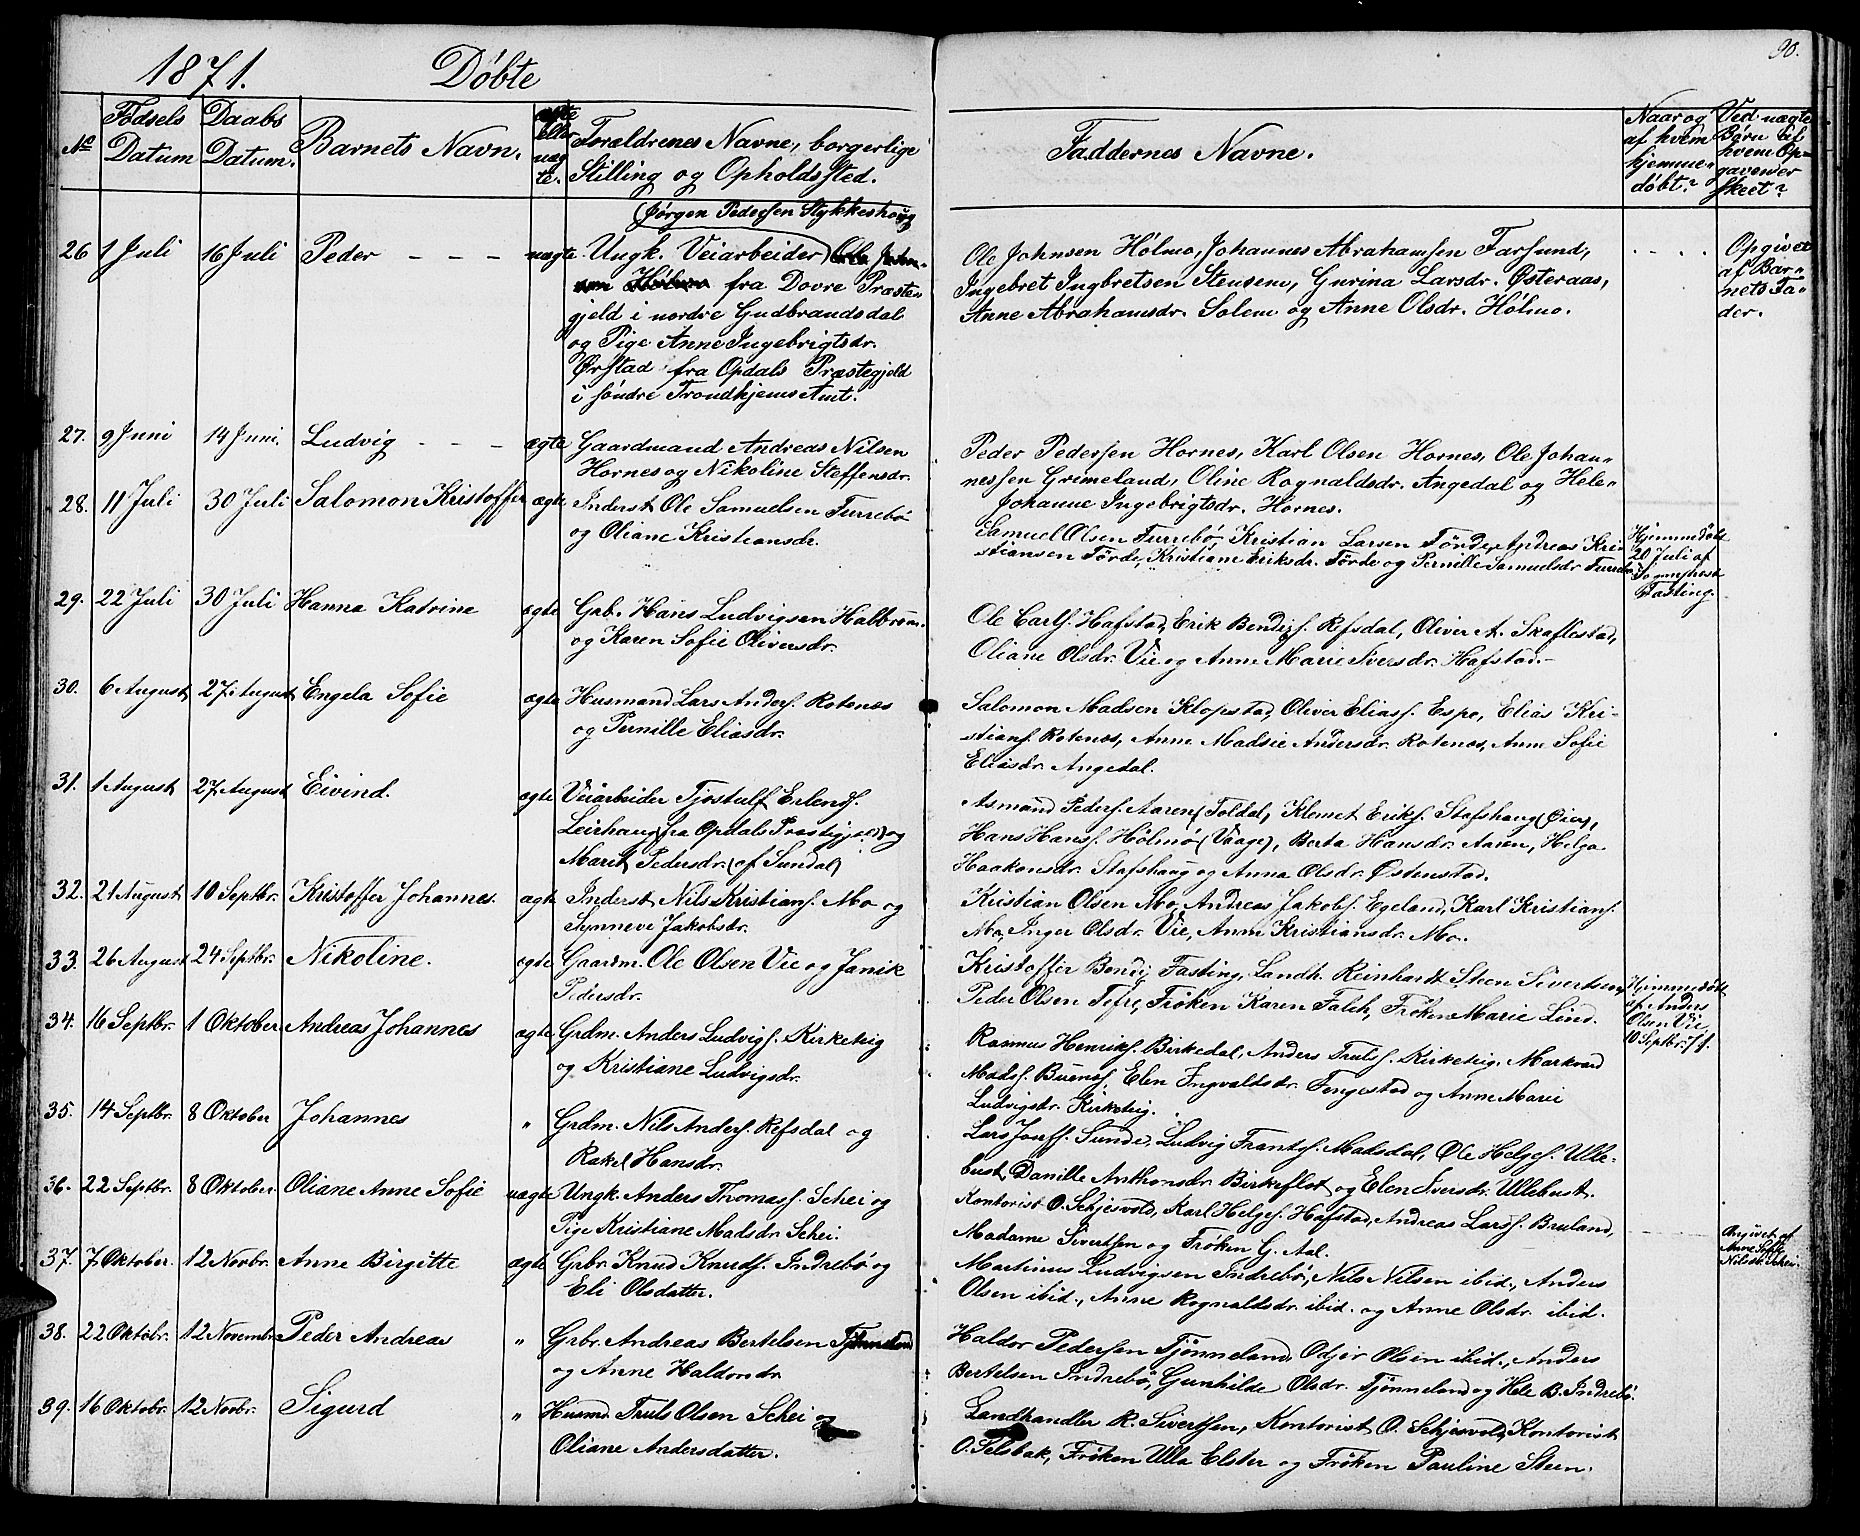 1871. Døbte
90.
No
Fødsels Datum
Daabs Datum.
Barnets Navn.
ægte eller uægte.
Forældrenes Navne, borgerlige
Stilling og Opholdssted.
Faddernes Navne.
Naar og af hvem hjemmedøbt?
Ved uægte Børn af hvem Opgaven er skeet?
26 1 Juli 16 Juli Peder - - - uægte.
(Jørgen Pedersen Stykkeshoug
Ungk. Veiarbeider
fra Dovre Præste-
gjeld i nordre Gudbrandsdal
og Pige Anne Ingebrigtsdr.
Ørstad fra Opdals Præstegjeld
i søndre Trondhjems Amt.
Ole Johnsen Hólmo, Johannes Abrahamsen Farsund,
Ingebret Ingbretsen Stensem, Gurina Larsdr. Østeraas,
Anne Abrahamsdr. Solem og Anne Olsdr. Hólmo.
Opgivet
af Bar-
nets Fa-
der.
27. 9 Juni 14 Juni. Ludvig - - - ægte Gaardmand Andreas Nilsen
Hornes og Nikoline Steffensdr.
Peder Pedersen Hornes, Karl Olsen Hornes, Ole Johan-
nessen Grimeland, Oline Rognaldsdr. Angedal og Hele-
Johanne Ingebrigtsdr. Hornes.
28. 11 Juli 30 Juli Salomon Kristoffer ægte Inderst Ole Samuelsen Furrebø
og Oliane Kristiansdr.
Samuel Olsen Furrebø, Kristian Larsen Førde, Andreas Kri-
stiansen Førde, Kristiane Eriksdr. Førde og Pernille Samuelsdr Furrebø
Hjemmedøbt
20 Juli af
Sognepræst
Fasting.
29. 22 Juli 30 Juli Hanna Katrine ægte Grb. Hans Ludvigsen Halbrem
og Karen Sofie Oliversdr.
Ole Carls. Hafstad, Erik Bendixs. Refsdal, Oliver A. Skaflestad,
Oliane Olsdr. Vie og Anne Marie Siversdr. Hafstad.-
30. 6 August 27 August Engela Sofie ægte Husmand Lars Anders. Rotenæs
og Pernille Eliasdr.
Salomon Madsen Klopstad, Oliver Elias. Espe, Elias Kri-
stians. Rotenæs, Anne Madsie Andersdr. Rotenæs, Anne Sofie
Eliasdr. Angedal.
31. 1 August 27 August Eivind. ægte Veiarbeider Tjostulf Erlends.
Leirhaug (fra Opdals Præstegjeld) og
Marit Pedersdr. (af Sundal)
Asmand Peders. Aaren (Toldal, Klemet Eriks. Stafshaug (Øier),
Hans Hans. Hólmø (Vaage), Berta Hansdr. Aaren, Helga
Haakonsdr. Stafshaug og Anna Olsdr. Østenstad.
32. 21 August 10 Septbr. Kristoffer Johannes. ægte Inderst Nils Kristians. Mo og
Synneve Jakobsdr.
Kristian Olsen Mo, Andreas Jakobs. Egeland, Karl Kristians.
Mo, Inger Olsdr. Vie, Anne Kristiansdr. Mo.
33. 26 August 24 Septbr. Nikoline. ægte Gaardm. Ole Olsen Vie og Janik
Pedersdr.
Kristoffer Bendix Fasting, Landh. Reinhardt Steen Sivertsen,
Peder Olsen Tefre, Frøken Karen Falch, Frøken Marie Lind.
Hjemmedøbt
af Anders
Olsen Vie
10 Septbr. 71.
34. 16 Septbr. 1 Oktober Andreas Johannes ægte Grdm. Anders Ludvigs. Kirketeig
og Kristiane Ludvigsdr.
Rasmus Henriks. Birkedal, Anders Truls. Kirketeig, Markvard
Mads. Buenes, Elen Ingvaldsdr. Fengestad og Anne Marie
Ludvigsdr. Kirketeig.
35. 14 Septbr. 8 Oktober Johannes " Grdm. Nils Anders. Refsdal og
Rakel Hansdr.
Lars Joens. Sunde, Ludvig Frants. Madsdal, Ole Helges. Ulle-
bust, Danille Anthonsdr. Birkeflot og Elen Siversdr. Ullebust.
36. 22 Septbr. 8 Oktober. Oliane Anne Sofie uægte Ungk. Anders Thomass. Schei og
Pige Kristiane Madsdr. Schei.
Kontorist O. Schjesvold, Karl Helges. Hafstad, Andreas Larss. Bruland,
Madame Sivertsen og Frøken G. Aal.
Angivet af
Anne Sofie
Nilsdr. Schei.
37. 7 Oktober. 12 Novbr. Anne Birgitte ægte Grbr. Knud Knuds. Indrebø og
Eli Olsdatter.
Martinus Ludvigsen Indrebø, Nils Nilsen ibid., Anders
Olsen ibid., Anne Rognaldsdr. ibid. og Anne Olsdr. ibid.
38. 22 Oktobr. 12 Novembr. Peder Andreas " Grbr. Andreas Bertelsen
og Anne Haldorsdr.
Haldor Pedersen Tjønneland, Odjer Olsen ibid., Anders
Bertelsen Indrebø, Gunhilde Olsdr. Tjønneland og Hele B. Indrebø.
39. 16 Oktobr. 12 Novbr. Sigurd " Husmd Truls Olsen Schei og
Oliane Andersdatter.
Landhandler R. Sivertsen, Kontorist O. Schjesvold, Kontorist
O. Selsbak, Frøken Ulla Elster og Frøken Pauline Steen.